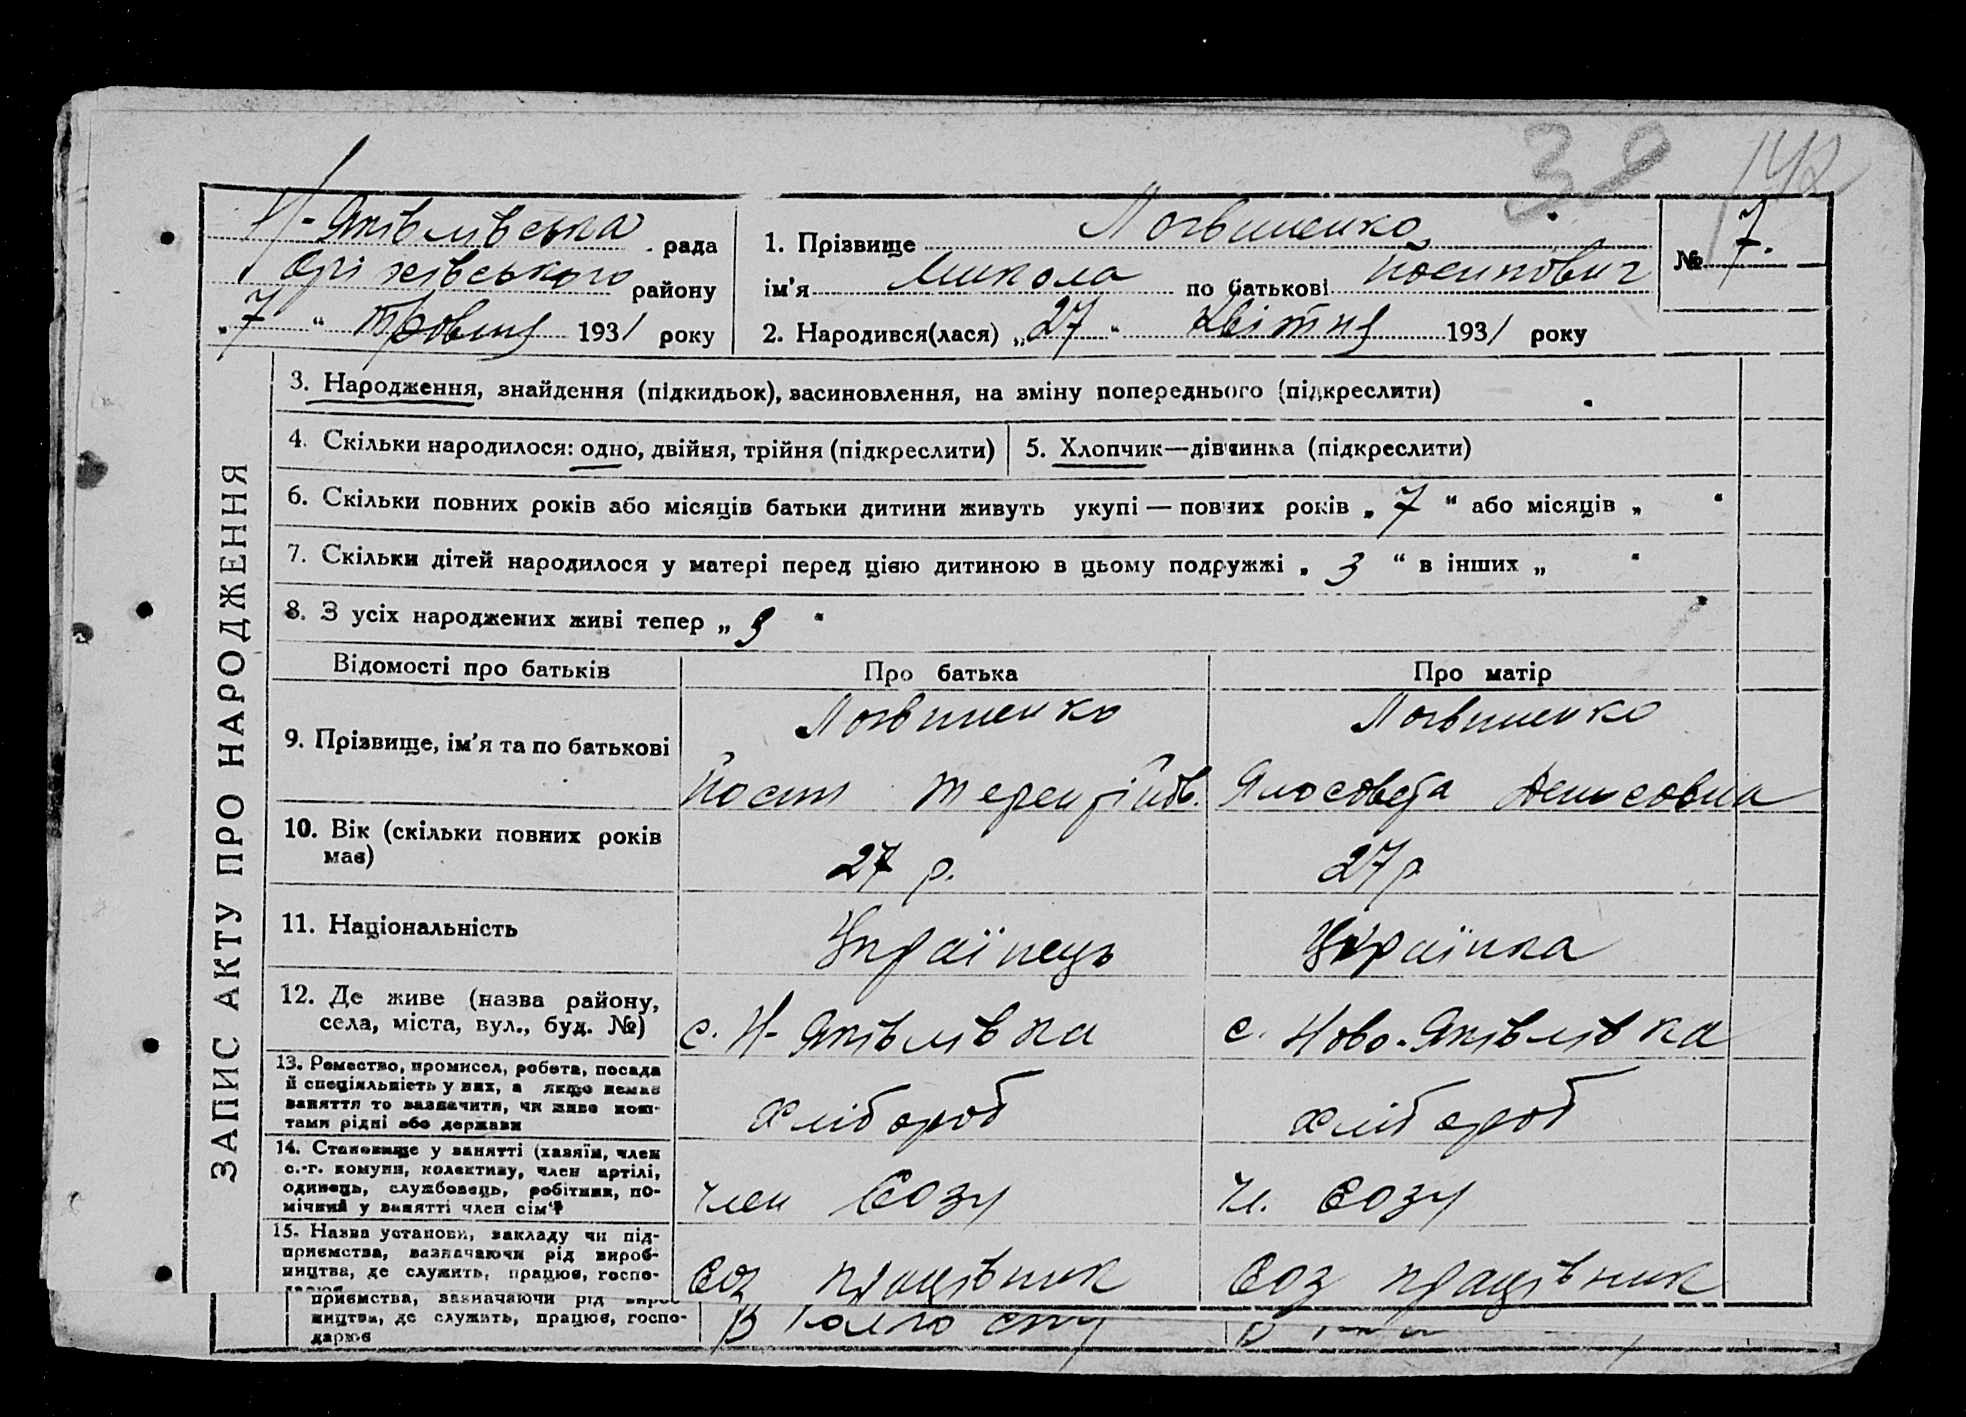 39 142
Н-Яківлівська рада
Оріхівського району
„7“ травня 1931 року
1. Прізвище Логвиненко
ім'я Микола по батькові Йосипович
2. Народився(лася) „27“ квітня 1931 року
№ 7.
ЗАПИС АКТУ ПРО НАРОДЖЕННЯ
3. Народження, знайдення (підкидьок), засиновлення, на зміну попереднього (підкреслити)
4. Скільки народилося: одно, двійня, трійня (підкреслити)
5. Хлопчик—дівчинка (підкреслити)
6. Скільки повних років або місяців батьки дитини живуть укупі — повних років „7“ або місяців „ “
7. Скільки дітей народилося у матері перед цією дитиною в цьому подружжі „3“ в інших „ “
8. З усіх народжених живі тепер „3“
Відомості про батьків Про батька Про матір
9. Прізвище, ім'я та по батькові
Логвиненко
Йосип Терентійов.
Логвиненко
Ялосовета Денисовна
10. Вік (скільки повних років
має)
27 р.
27 р
11. Національність
Українець
Українка
12. Де живе (назва району,
села, міста, вул., буд. №)
с. Н-Яківлівка
с. Ново-Яківлівка
13. Ремество, промисел, робота, посада
й спеціяльність у них, а якщо немає
заняття то зазначити, чи живе кош-
тами рідні або держави
хлібороб
хлібороб
14. Становище у занятті (хазяїн, член
с.-г. комуни, колективу, член артілі,
одинець, службовець, робітник, по-
мічний у занятті член сім'ї
член Созу
чл. Созу
15. Назва установи, закладу чи під-
приємства, зазначаючи рід вироб-
ництва, де служить, працює, госпо-
дарює
Соз працівник
Соз працівник
приємства, зазначаючи рід вироб-
ництва, де служить, працює, госпо-
дарює
В